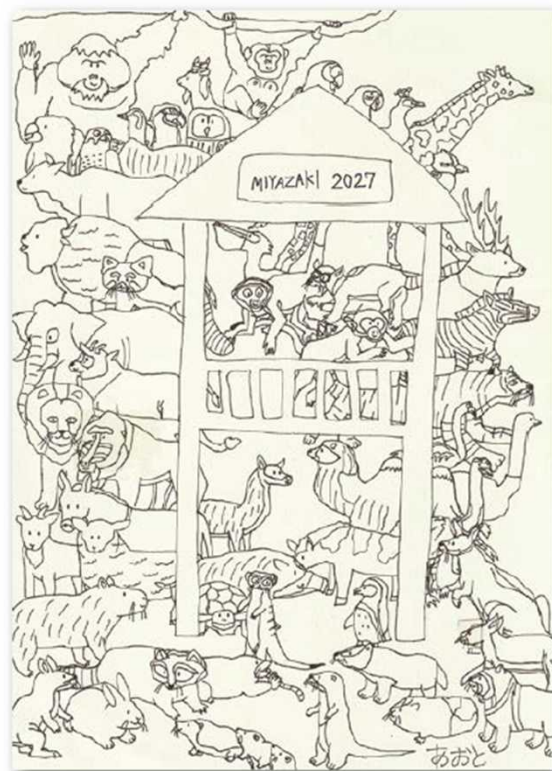 MIYAZAKI 2027
あおと